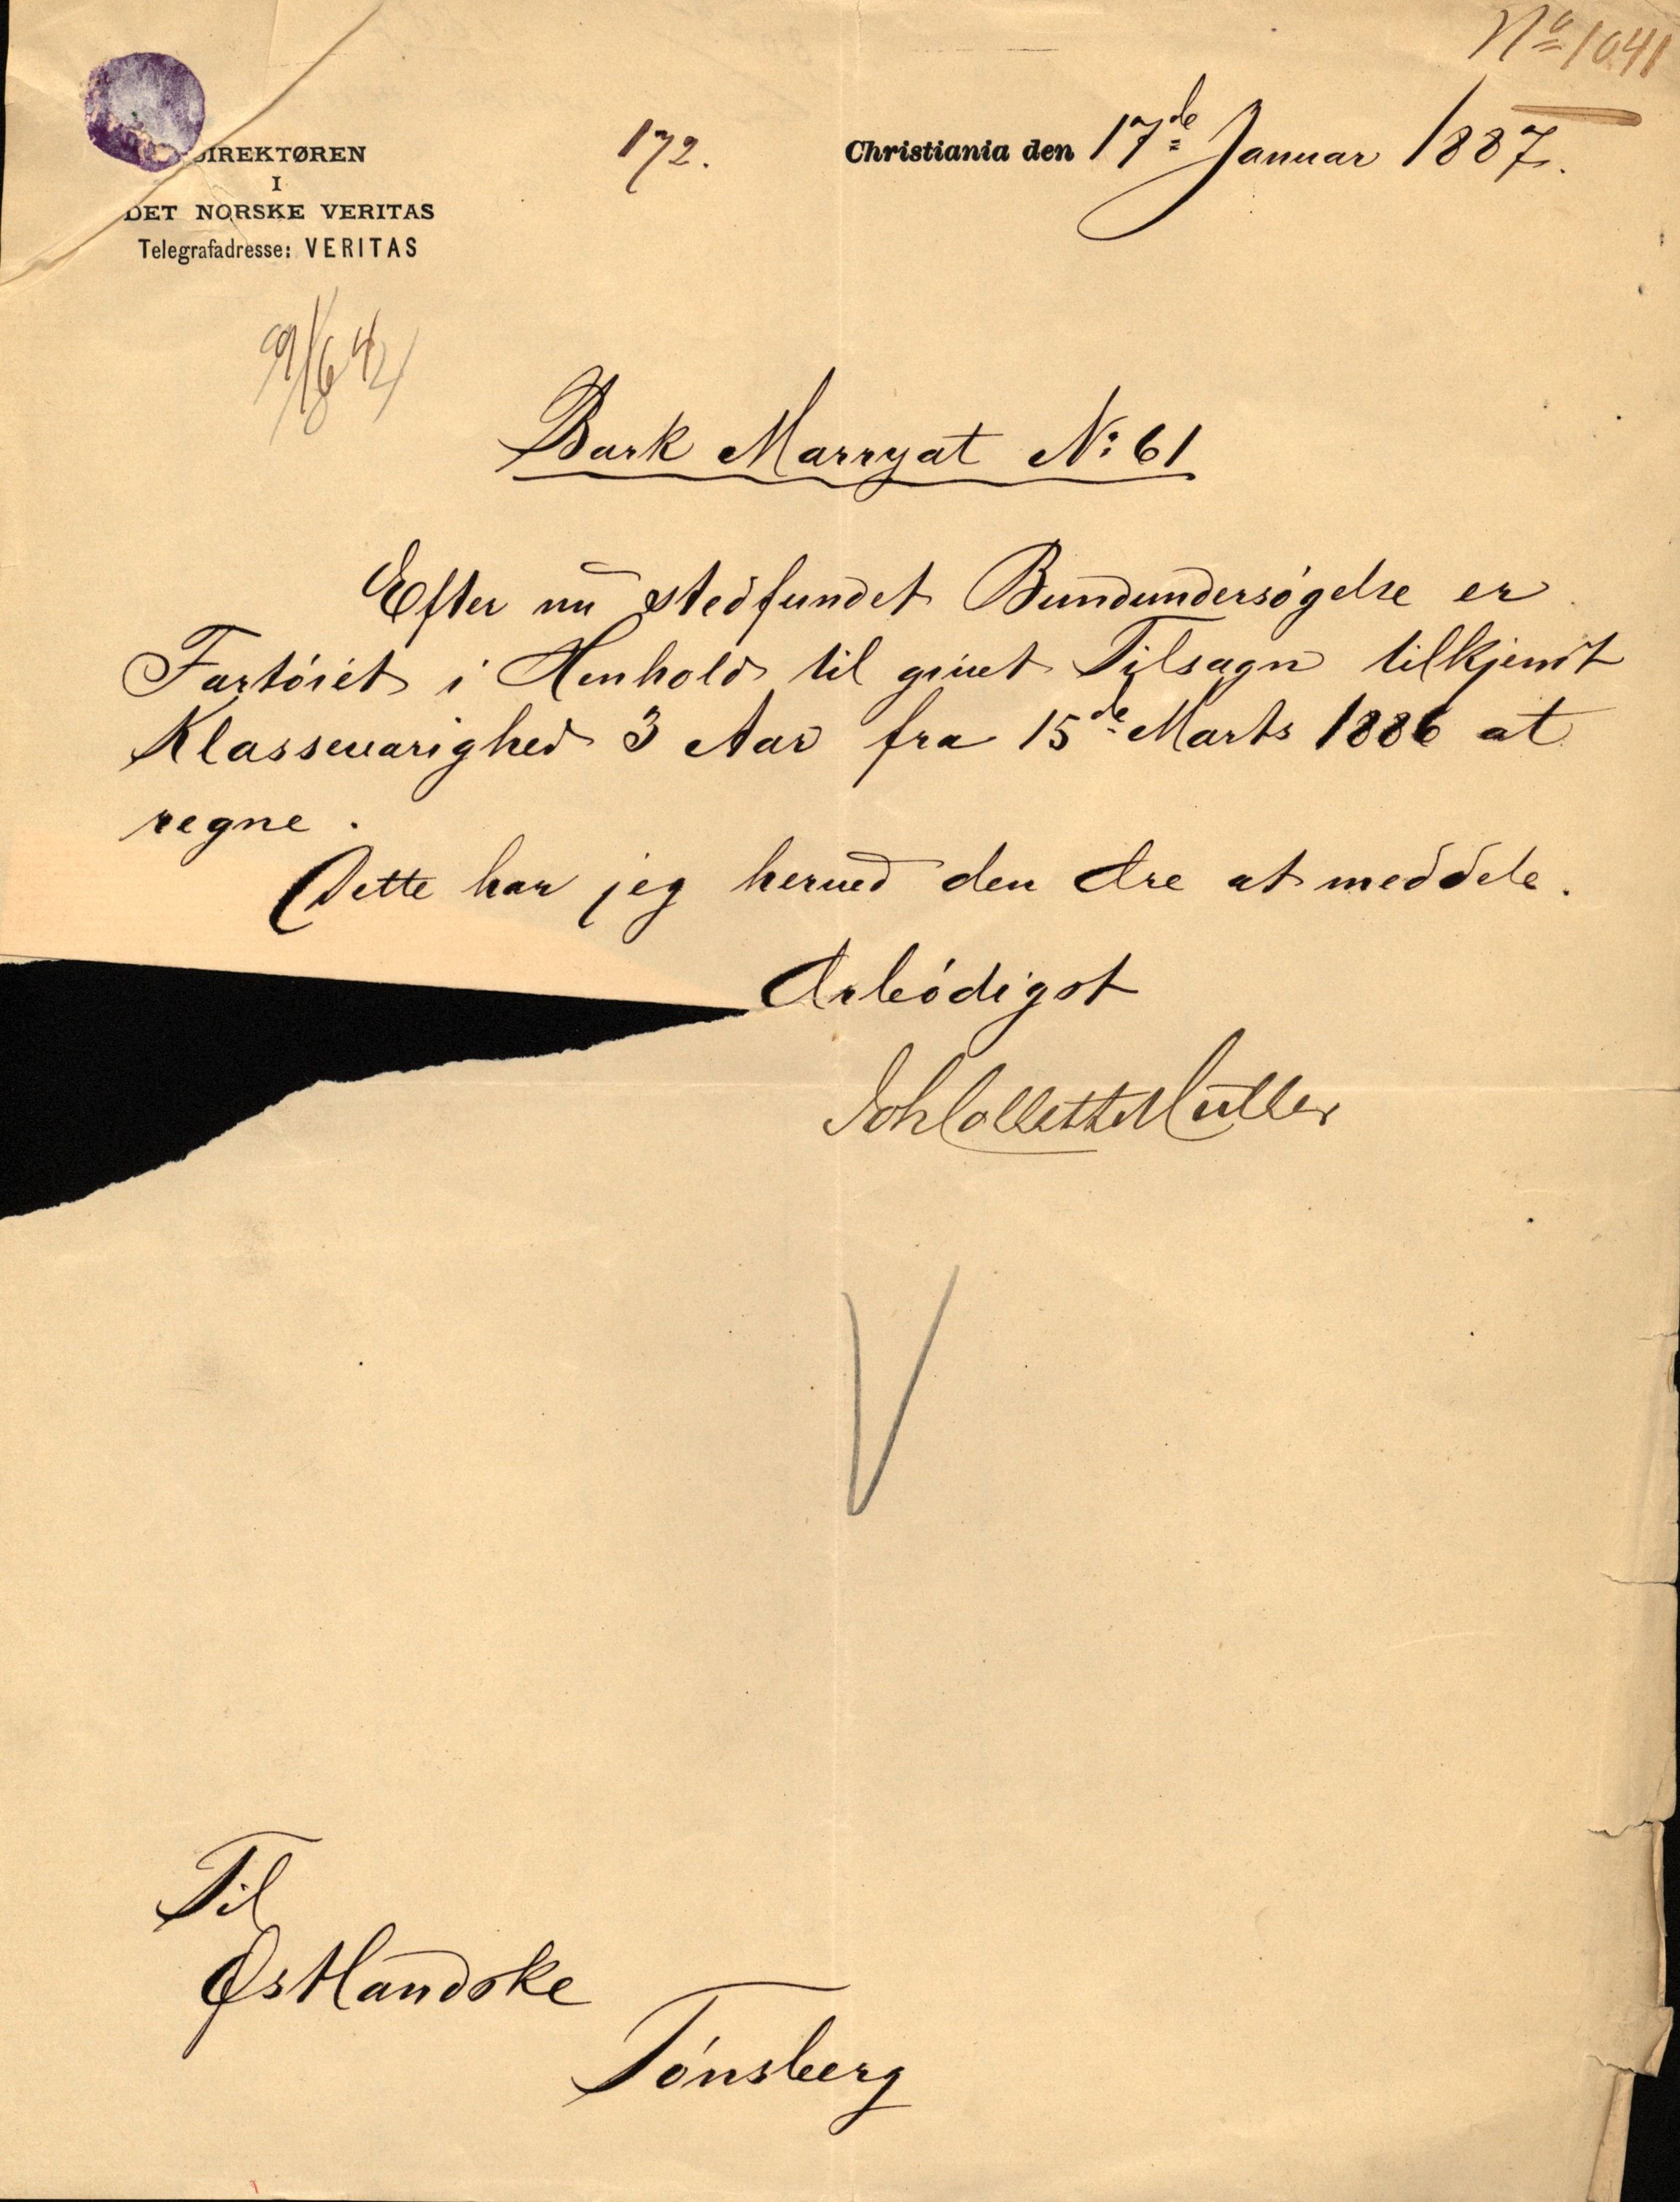 No 1041
DIREKTØREN
I
DET NORSKE VERITAS
Telegrafadresse: VERITAS
172.
Christiania den 17de Januar 1887.
Bark Marryat No: 61
Efter nu stedfundet Bundundersøgelse er
Fartøiet i Henhold til givet Tilsagn tilkjendt
Klassevarighed 3 Aar fra 15de Marts 1886 at
regne.
Dette har jeg herved den Ære at meddele.
Ærbødigst
Joh Collett Müller
Til
Østlandske
Tønsberg